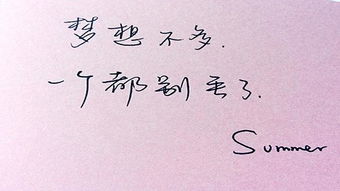 梦想不多.
一个都别丢了.
Summer